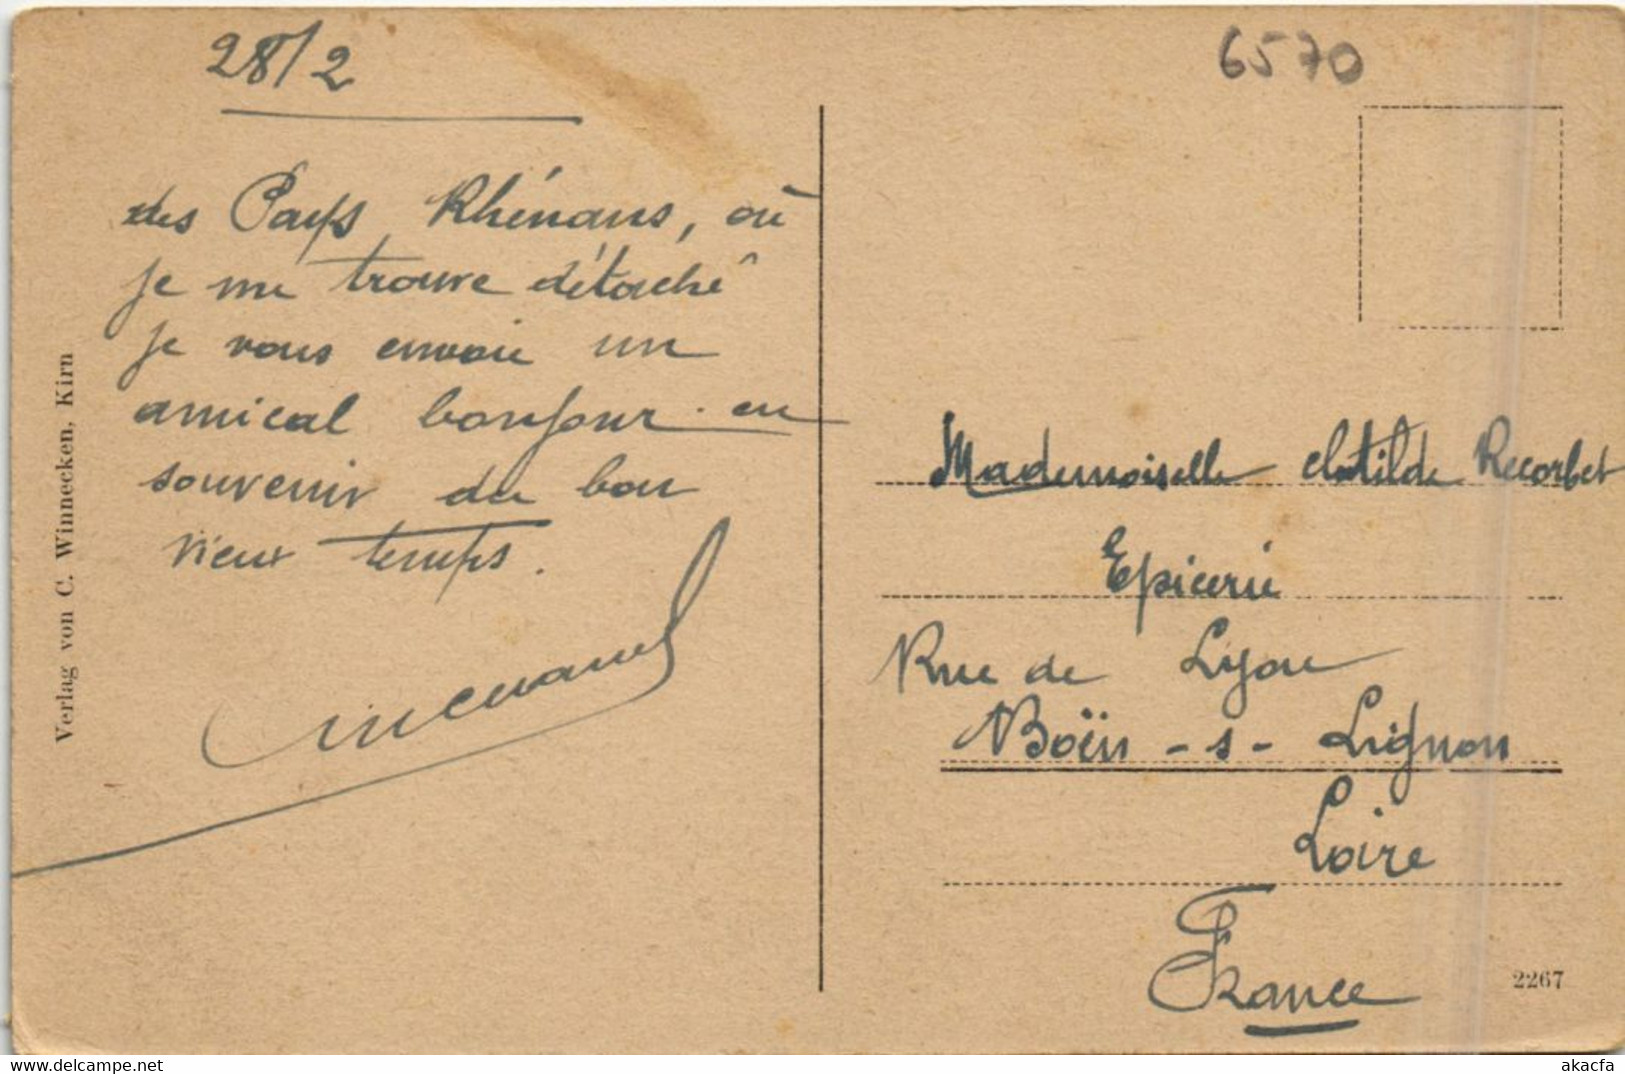 28/2
des Pays Rhénans, où
je me trouve détaché
je vous envoie un
amical bonjour en
souvenir du bon
vieux temps.
Verlag von C. Winnecken, Kirn
6570
Mademoiselle Clotilde Recorbet
Epicerie
Rue de Lyon
Boën - s - Lignon
Loire
France
2267
www.delcampe.net
akacfa